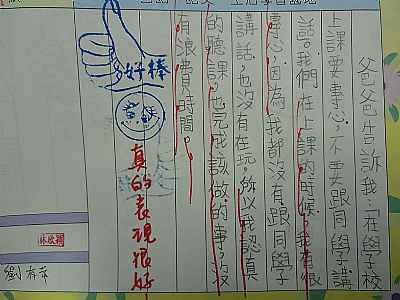 爸爸告訴我：「在學校
上課要專心，不要跟同學講
話。」我們在上課的時候，我有很
專心，因為我都沒有跟同學
講話，也沒有在玩，所以我認真
的聽課，也完成該做的事，沒
有浪費時間。
好棒
真的表現很好